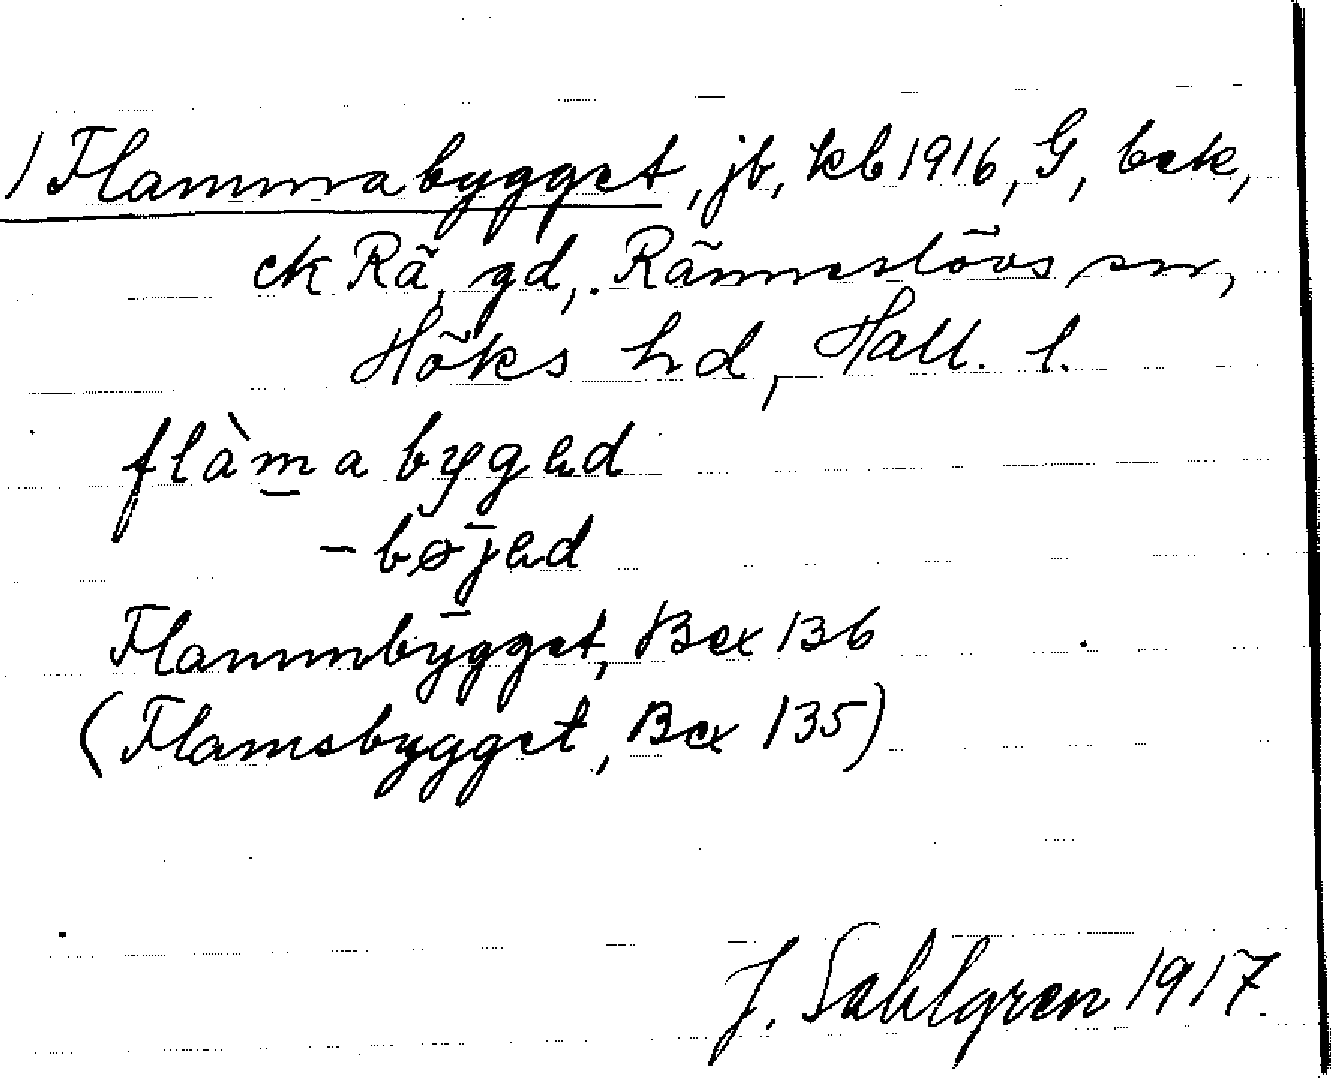 1 Flammabygget, jb, kb 1916, G, bek,
ek Rä, gd, Ränneslövs sn,
Höks hd, Hall. l.
flàm̲a bygəd
- bøjəd
Flammbygget, Bex 136
(Flamsbygget, Bex 135)
J. Sahlgren 1917.